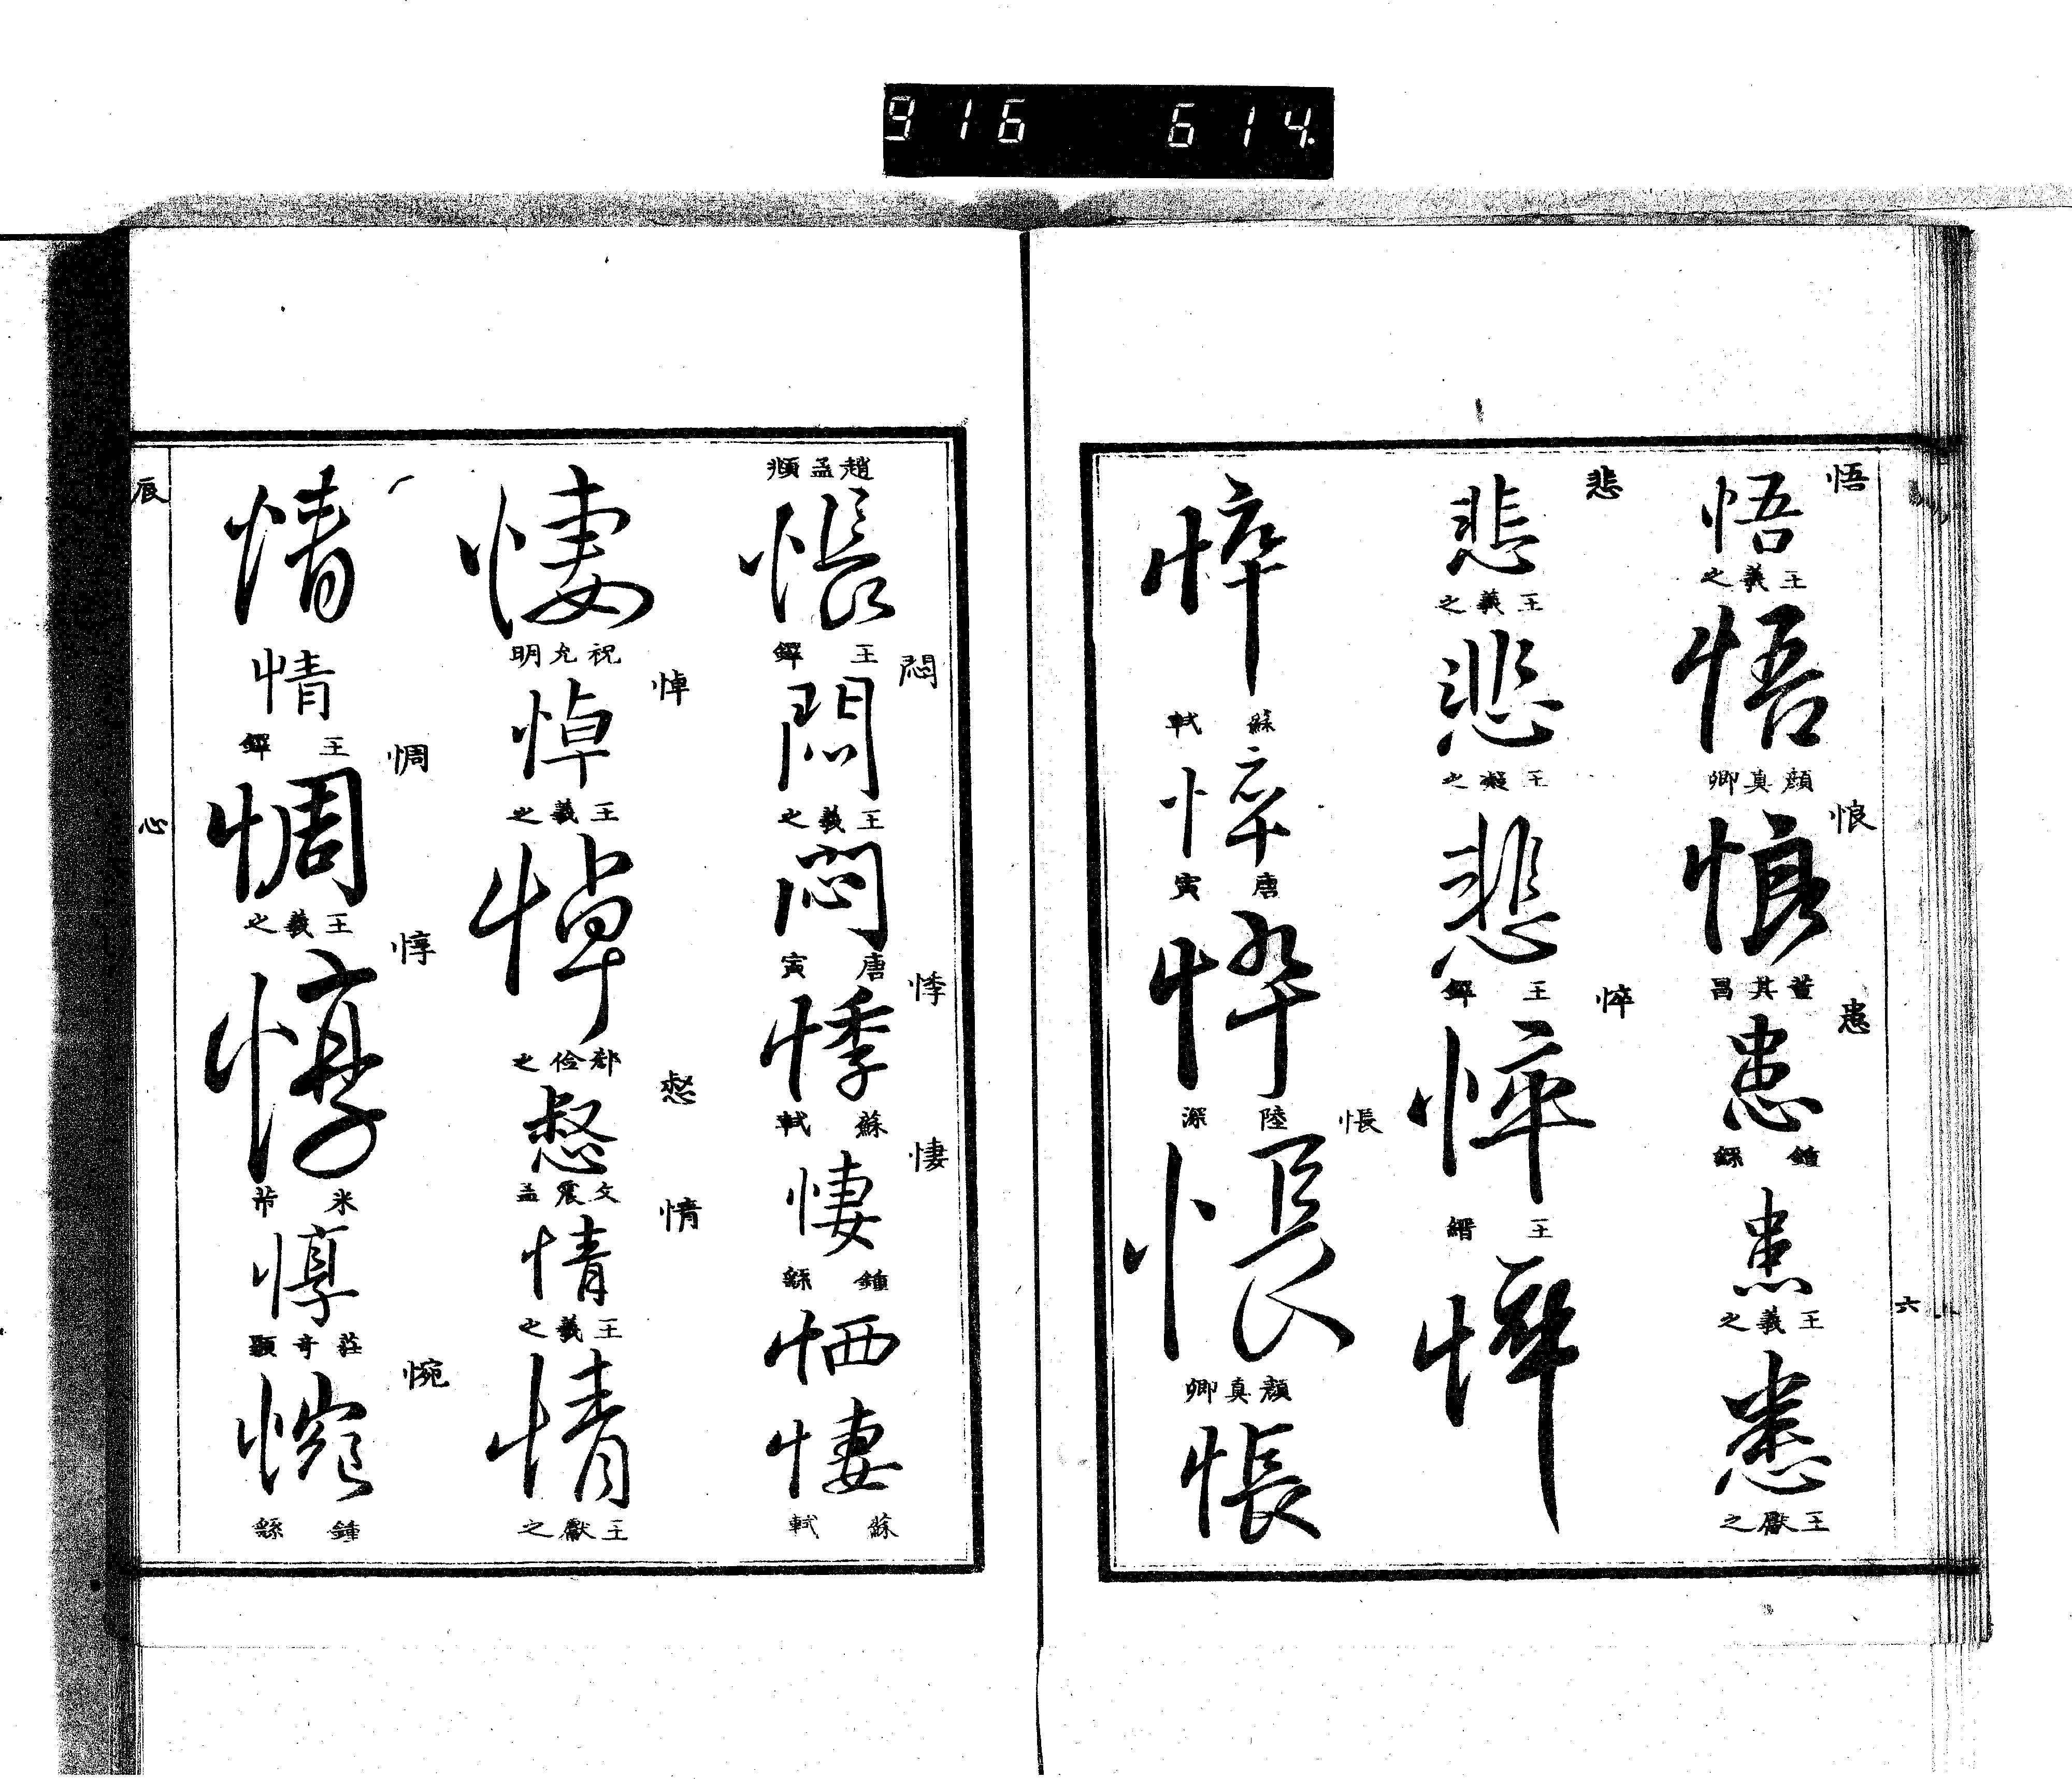 916 614
悟
悟
王羲之
悟
顏真卿
悢
悢
董其昌
患
患
鍾繇
患
王羲之
患
王獻之
悲
悲
王羲之
悲
王凝之
悲
王鐸
悴
悴
王縉
悴
悴
蘇軾
悴
唐寅
悴
陸深
悵
悵
顏真卿
悵
六
趙孟頫
悵
王鐸
悶
悶
王羲之
悶
唐寅
悸
悸
蘇軾
悽
悽
鍾繇
恓
悽
蘇軾
悽
祝允明
悼
悼
王羲之
悼
郗儉之
惄
惄
文震孟
情
情
王羲之
情
王獻之
情
情
王鐸
惆
惆
王羲之
惇
惇
米芾
惇
莊奇顯
惋
惋
鍾繇
辰
心